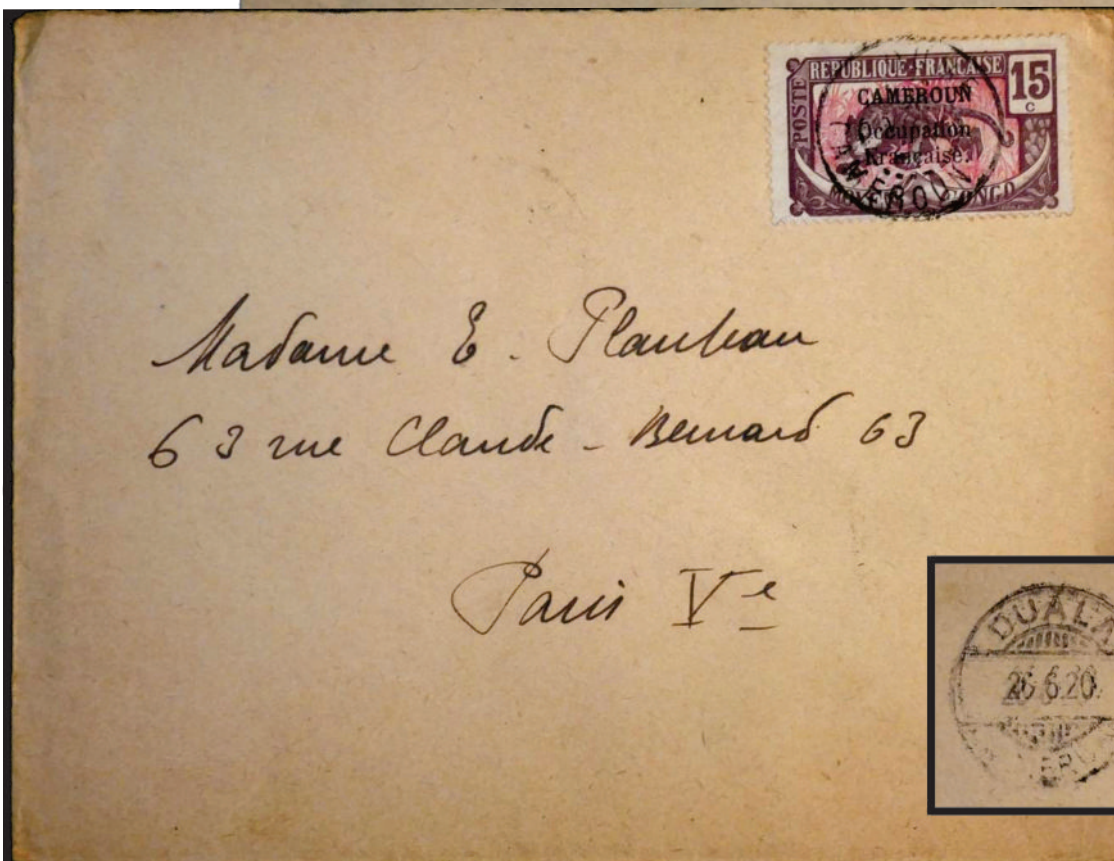 REPUBLIQUE-FRANÇAISE
POSTE
15
C
CAMEROUN
Occupation
Française.
MOYEN CONGO
CAMEROUN
Madame E.
63 rue Claude-Bernard 63
Paris Ve
DUALA
26.6.20